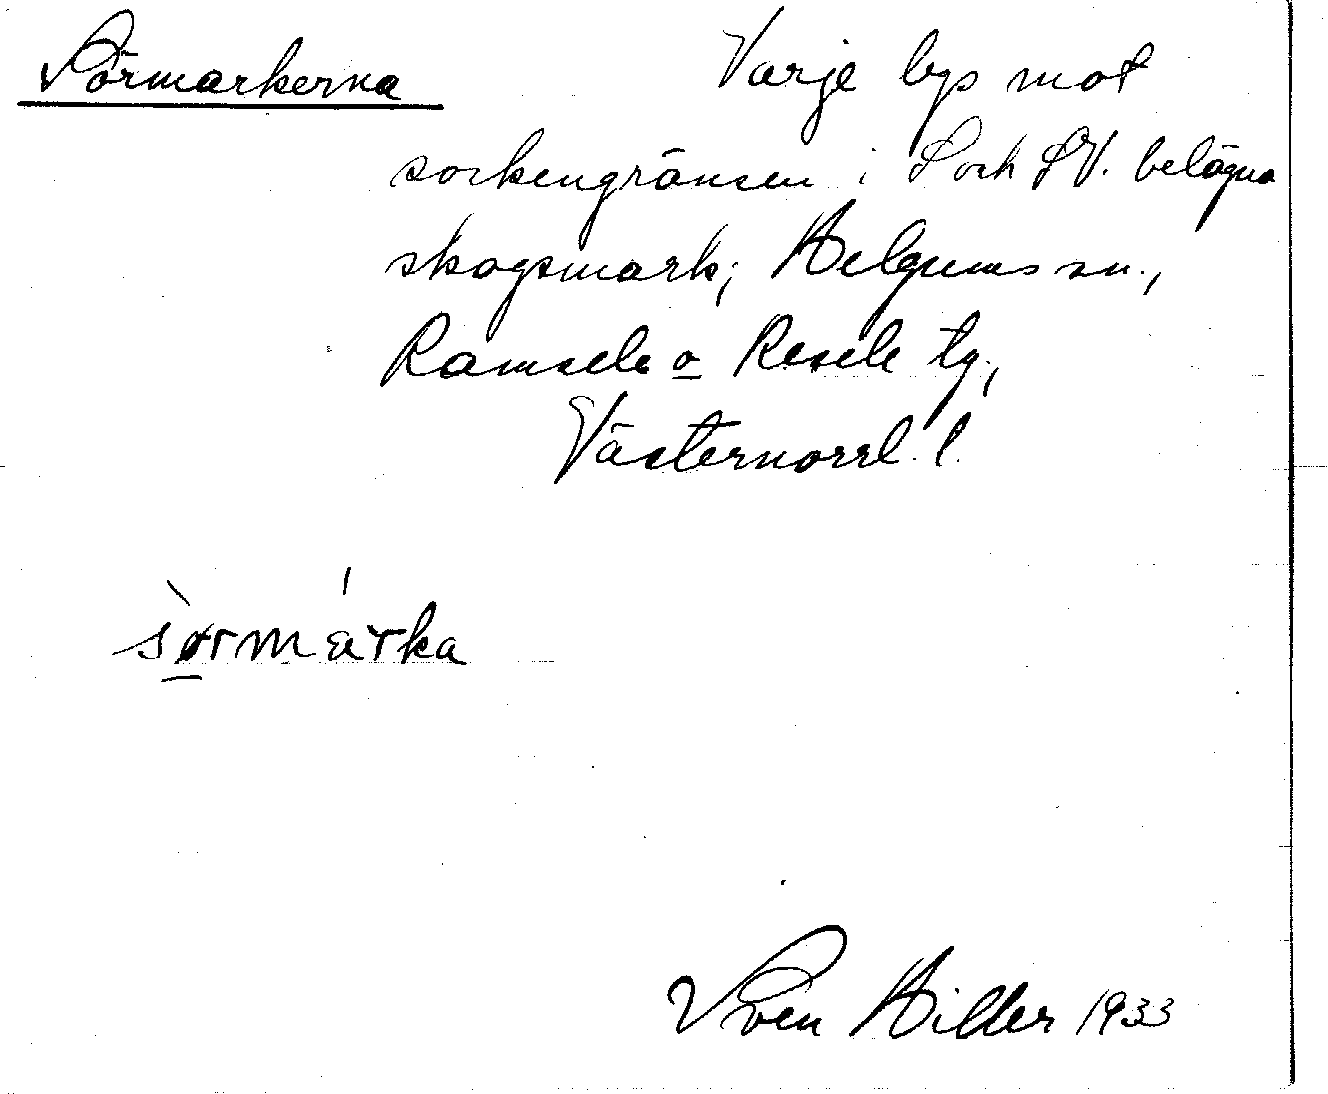 Sörmarkerna
Varje bys mot
sockengränsen i S och SV. belägna
skogsmark; Helgums sn.,
Ramsele o Resele tg.,
Västernorrl. l.
sørmárka
Sven Hiller 1933